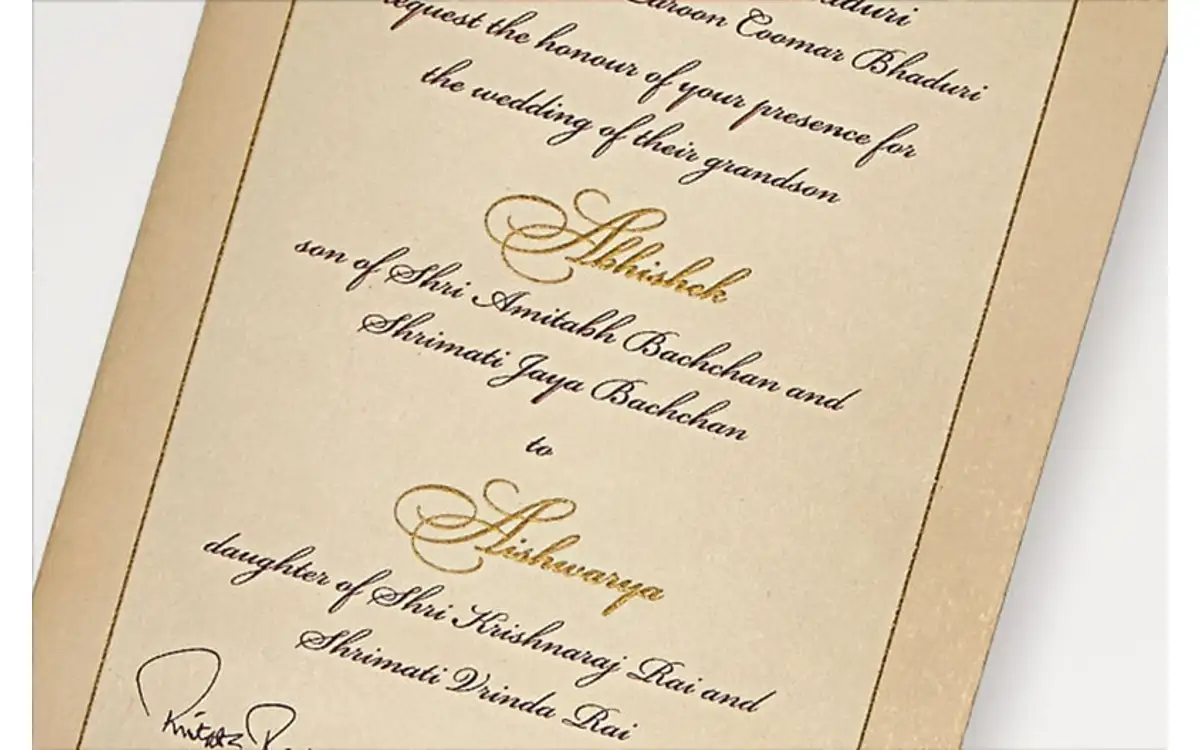 Coomar Bhaduri
request the honour of your presence for
the wedding of their grandson
Abhishek
son of Shri Amitabh Bachchan and
Shrimati Jaya Bachchan
to
Aishwarya
daughter of Shri Krishnaraj Rai and
Shrimati Vrinda Rai